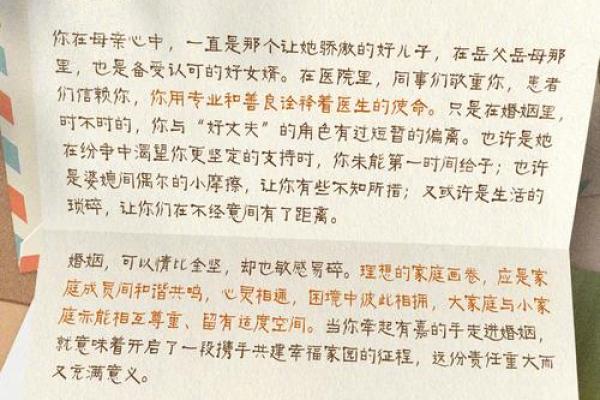 你在母亲心中，一直是那个让她骄傲的好儿子，在岳父岳母那
里，也是备受认可的好女婿。在医院里，同事们敬重你，患者
们信赖你，你用专业和善良诠释着医生的使命。只是在婚姻里，
时不时的，你与“好丈夫”的角色有过短暂的偏离。也许是她
在纷争中渴望你更坚定的支持时，你未能第一时间给予；也许
是婆媳间偶尔的小摩擦，让你有些不知所措；又或许是生活的
琐碎，让你们在不经意间有了距离。
婚姻，可以情比金坚，却也敏感易碎。理想的家庭画卷，应是家
庭成员间和谐共鸣，心灵相通，困境中彼此相拥，大家庭与小家
庭亦能相互尊重、留有适度空间。当你牵起有嘉的手走进婚姻，
就意味着开启了一段携手共建幸福家园的征程，这份责任重大而
又充满意义。